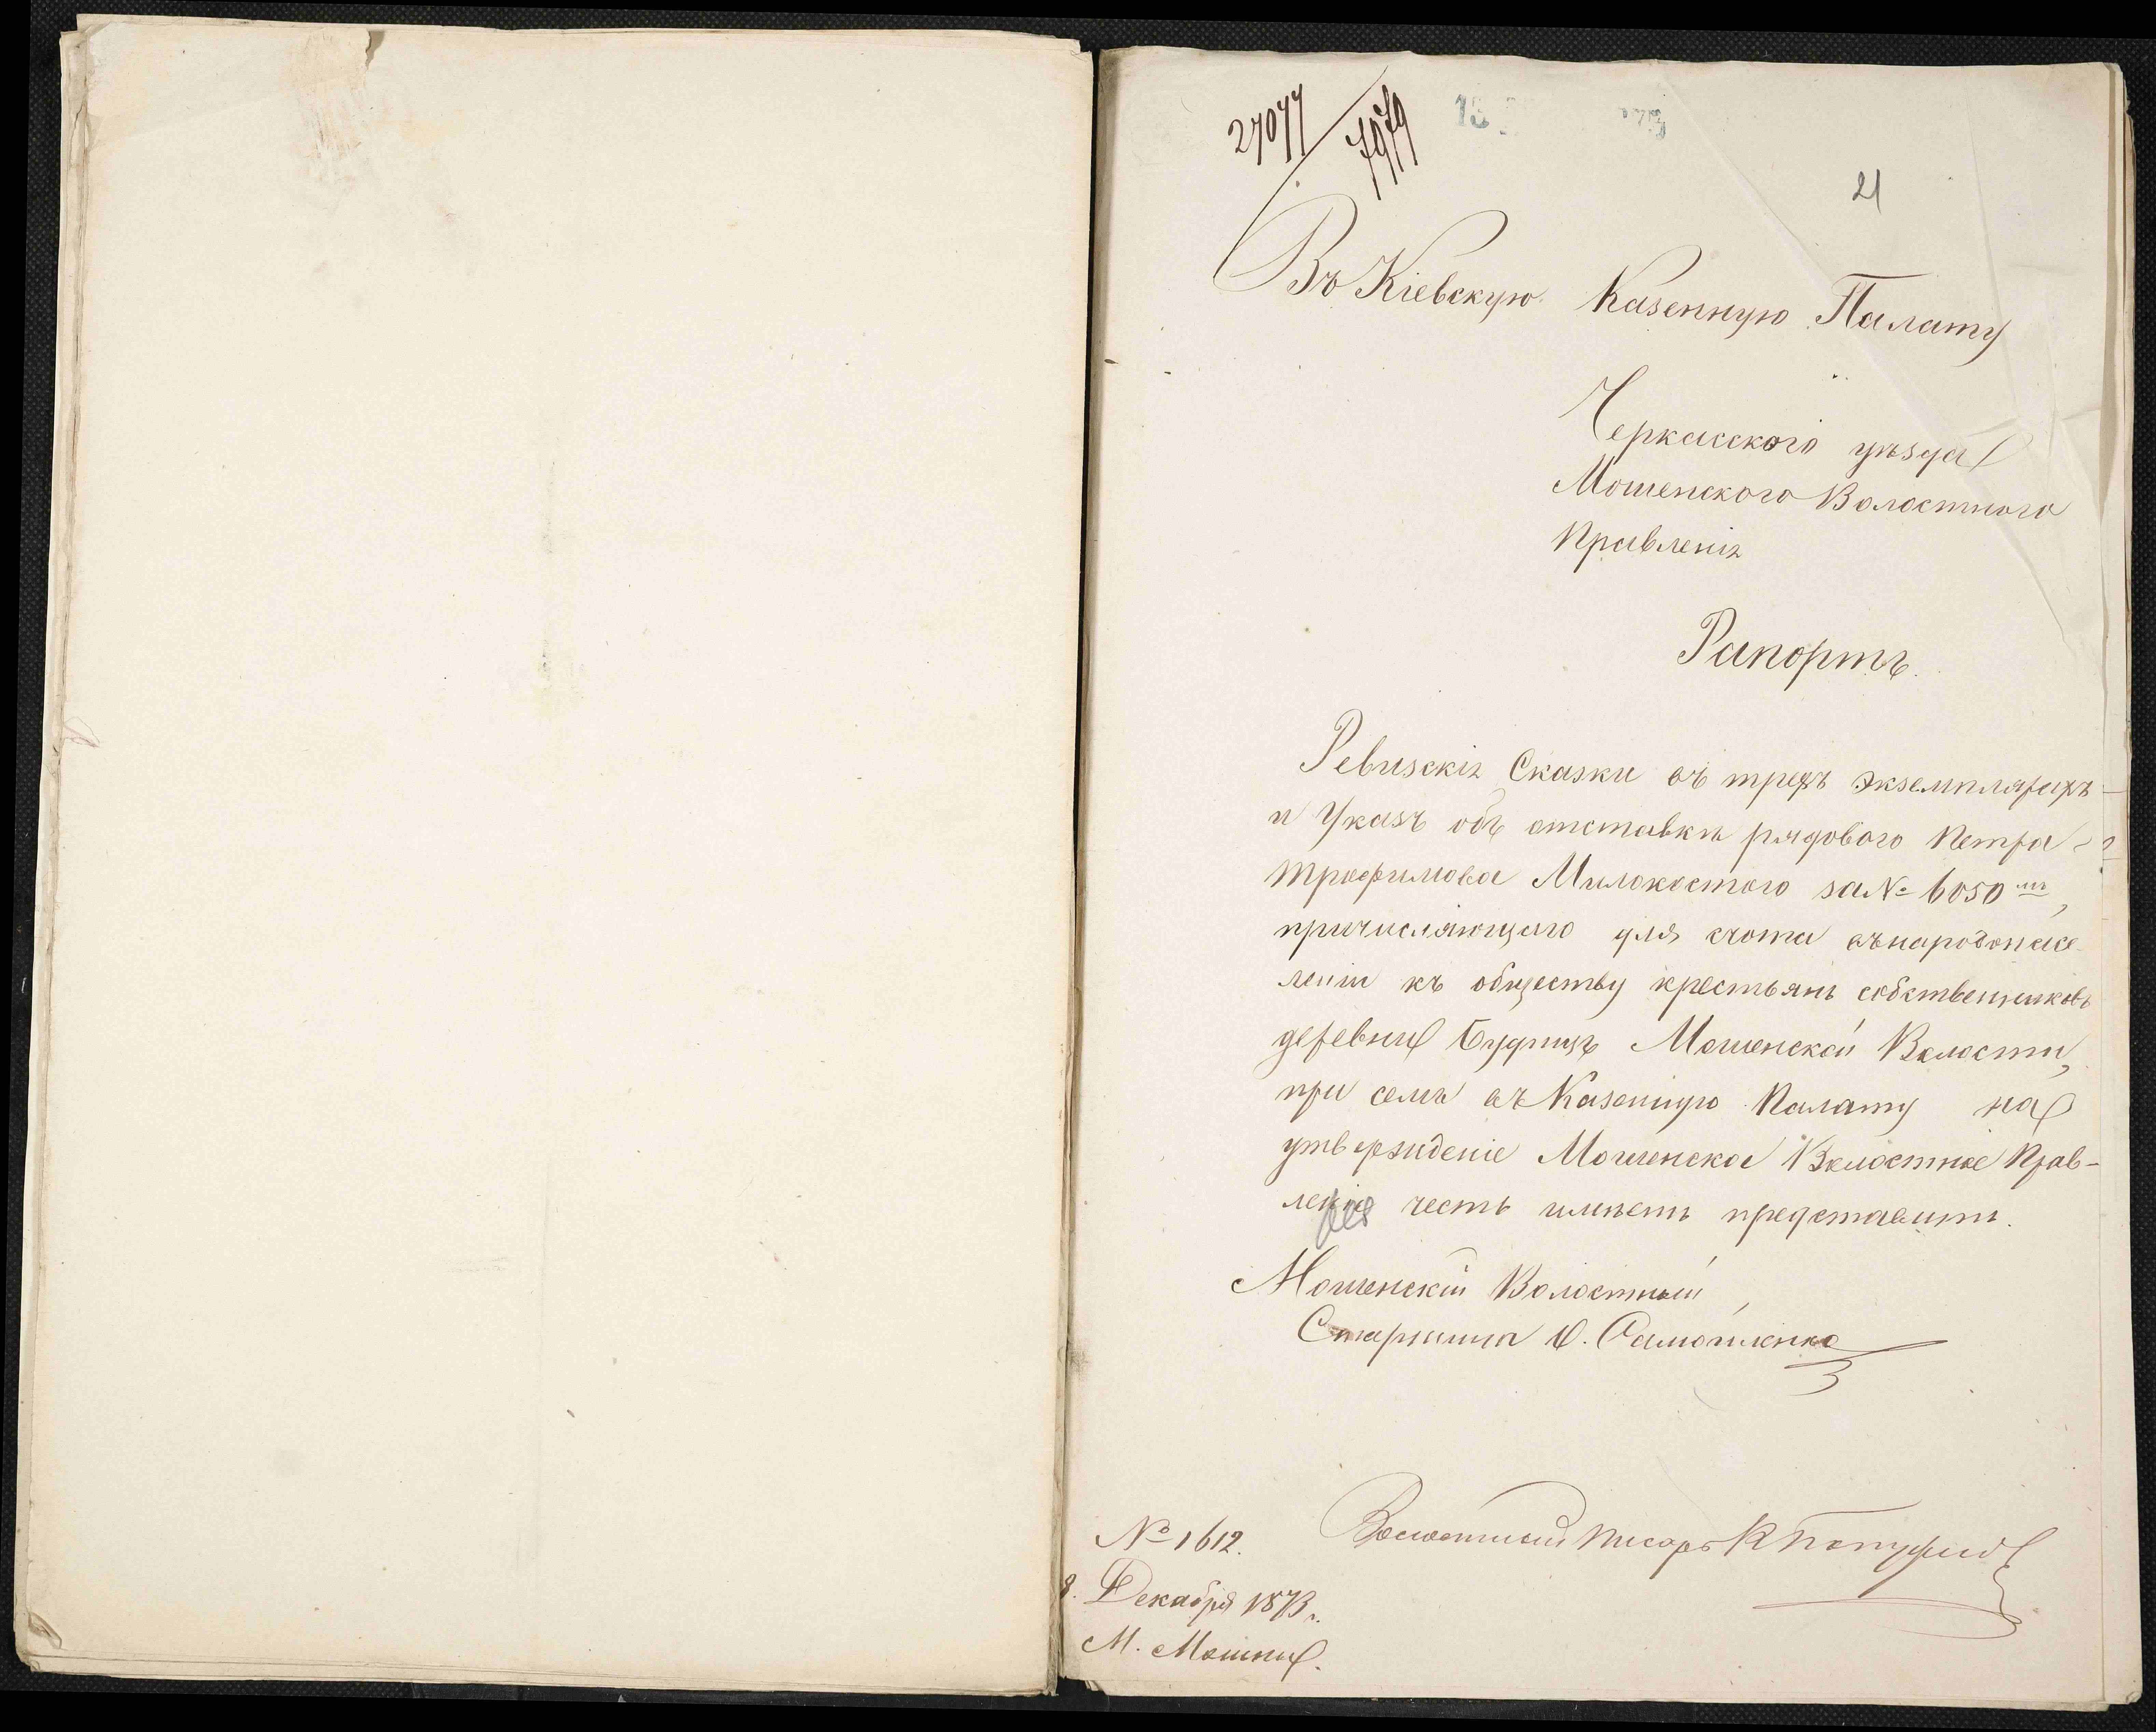 27077 / 7979
21
Въ Кіевскую Казенную Палату
Черкасского уѣзда
Мошенского Волостного
Правленія
Рапортъ.
Ревизскія Сказки въ трехъ экземплярахъ
и Указъ объ отставкѣ рядового Петра
Трофимова Милокостого за № 6050 мъ,
причисляющаго для счота въ народонасе-
леніи къ обществу крестьянъ собственниковъ
деревни Будищъ Мошенской Волости,
при семъ въ Казенную Палату на
утвержденіе Мошенское Волостное Прав-
леніе честь имѣетъ представить.
Мошенскій Волостный
Старшина Самойленко
Волостный Писарь
№ 1612.
8. Декабря 1873 г.
М. Мошны.